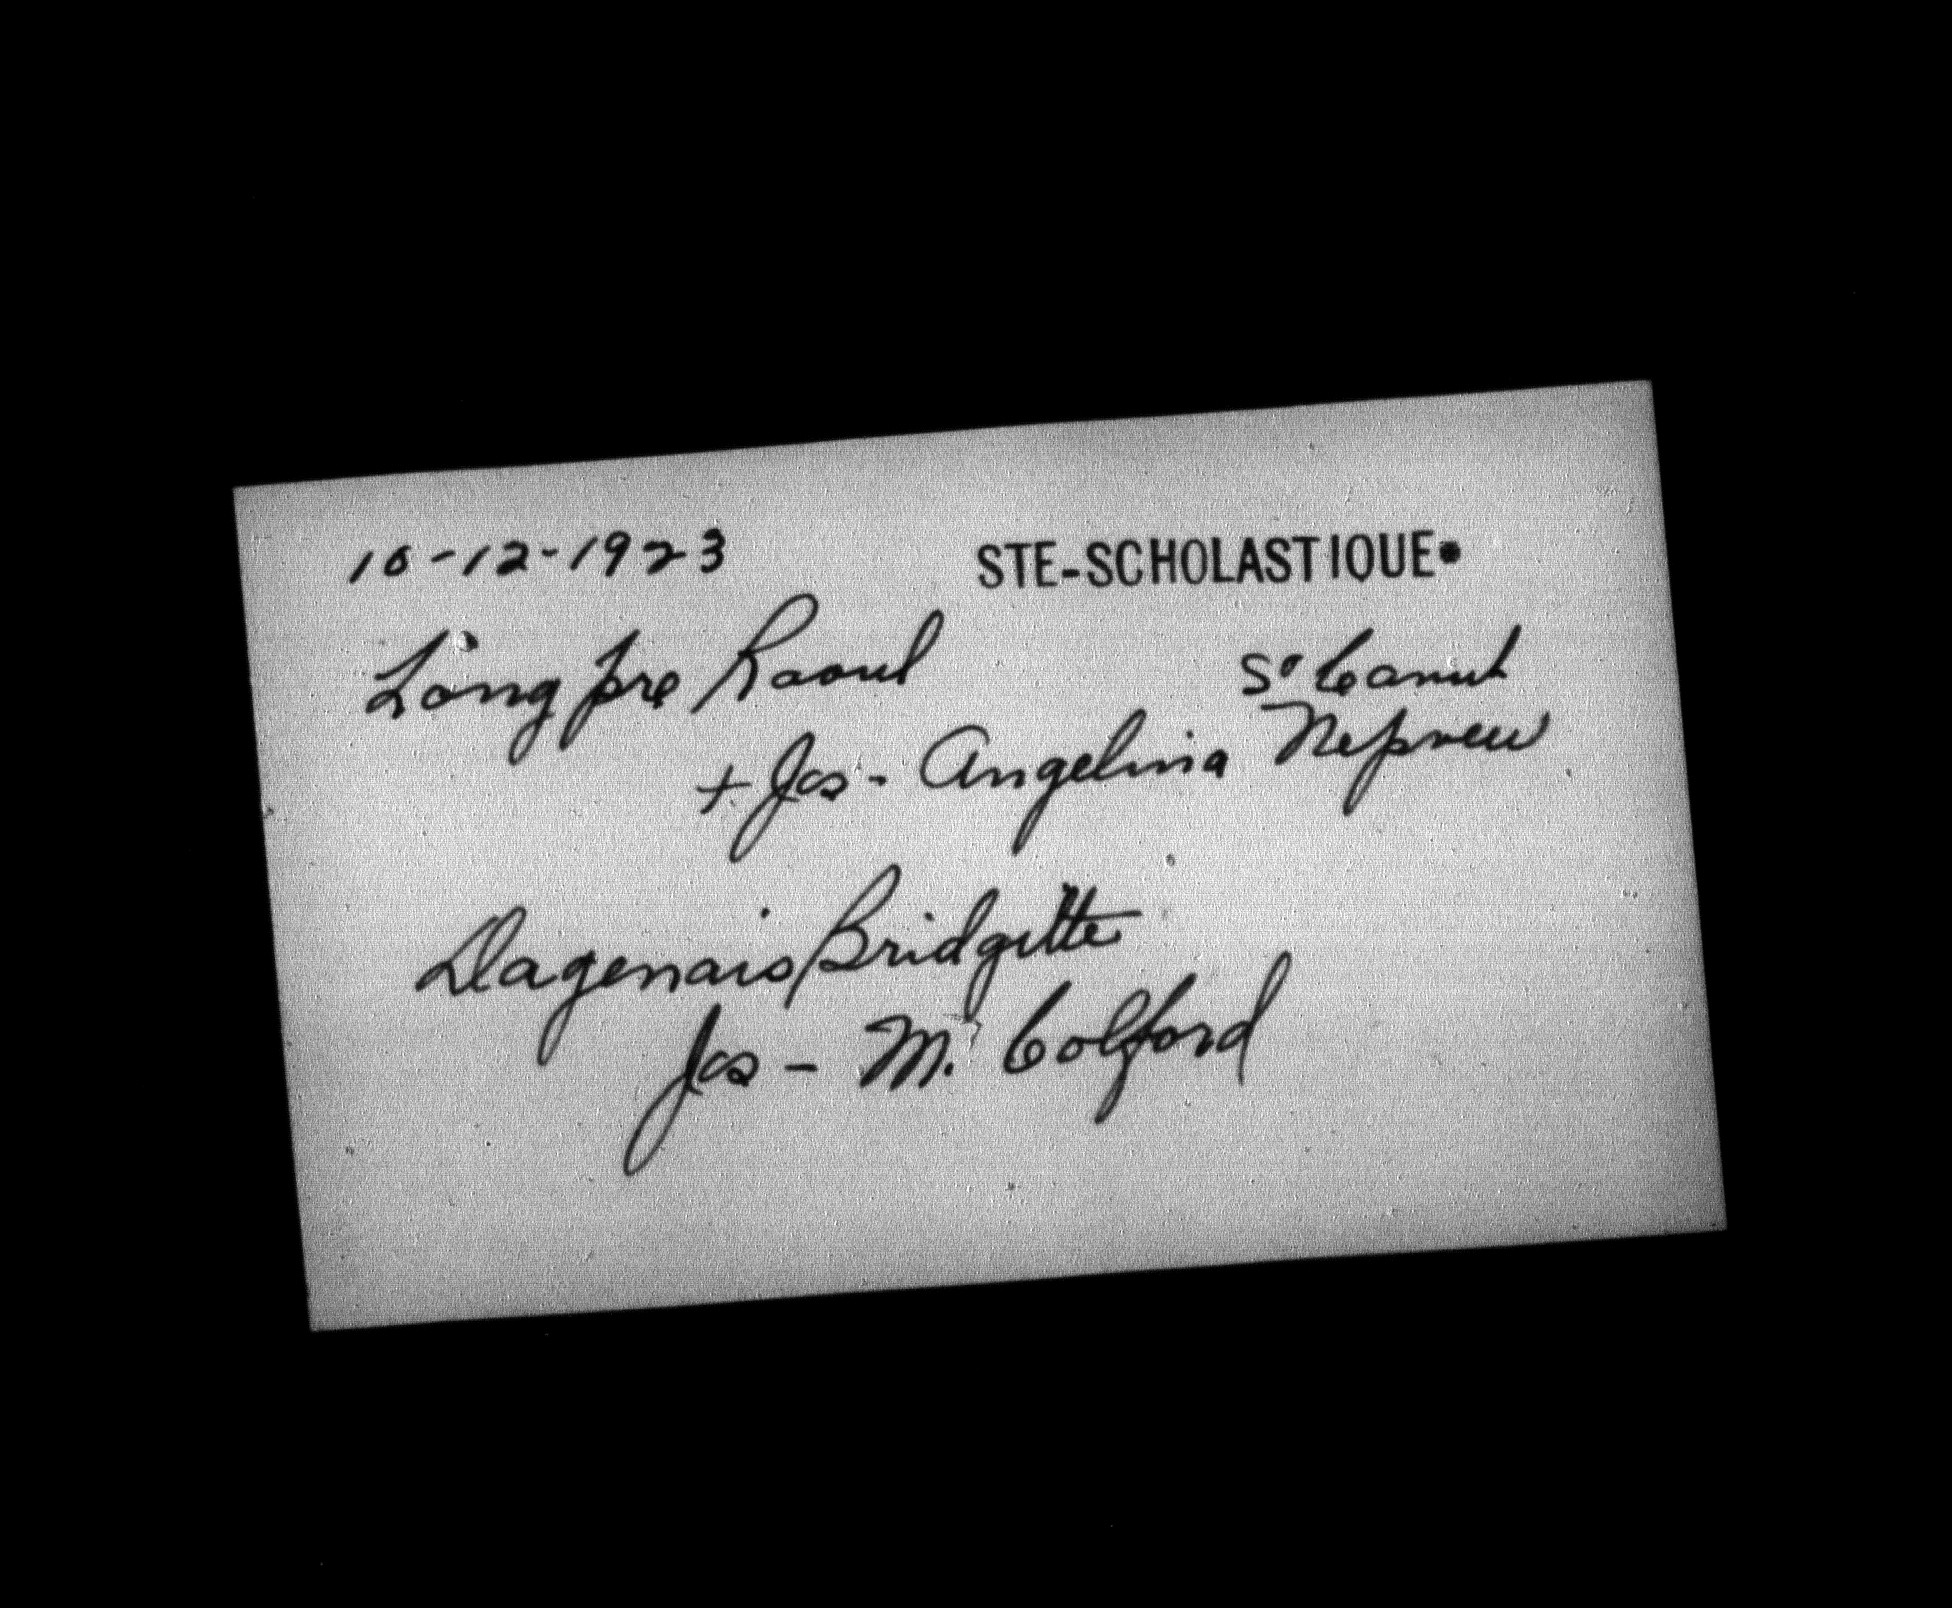 10-12-1923 STE-SCHOLASTIQUE.
Longpre Raoul St Canut
+ Jos - Angelina Nepveu
Dagenais Bridgitte
Jos - M. Colford